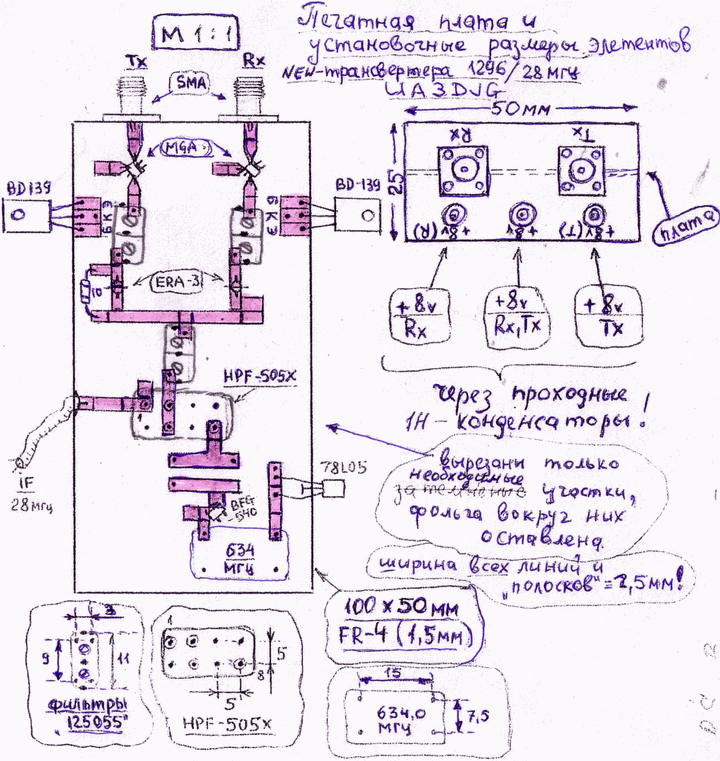 М 1:1
Печатная плата и
установочные размеры элетентов
NEW-трансвертера 1296/28 МГЦ
UA3DJG
Tx
Rx
SMA
MGA
BD139
Б К Э
Б К Э
BD-139
10
ERA-3
HPF-505X
1
IF
28 МГЦ
BFG
-540
78L05
634
МГЦ
50мм
25
Rx
Tx
+8v(R)
+8v
+8v(T)
плата
+8v
Rx
+8v
Rx,Tx
+8v
Tx
через проходные
1Н-конденсаторы!
вырезаны только
необходимые
затемнёные участки,
фольга вокруг них
оставлена.
ширина всех линий и
„полосков" = 2,5мм!
100 х 50 мм
FR-4 (1,5мм)
9
11
фильтры
"125055"
1
5
8
5
HPF-505X
15
634,0
МГЦ
7,5